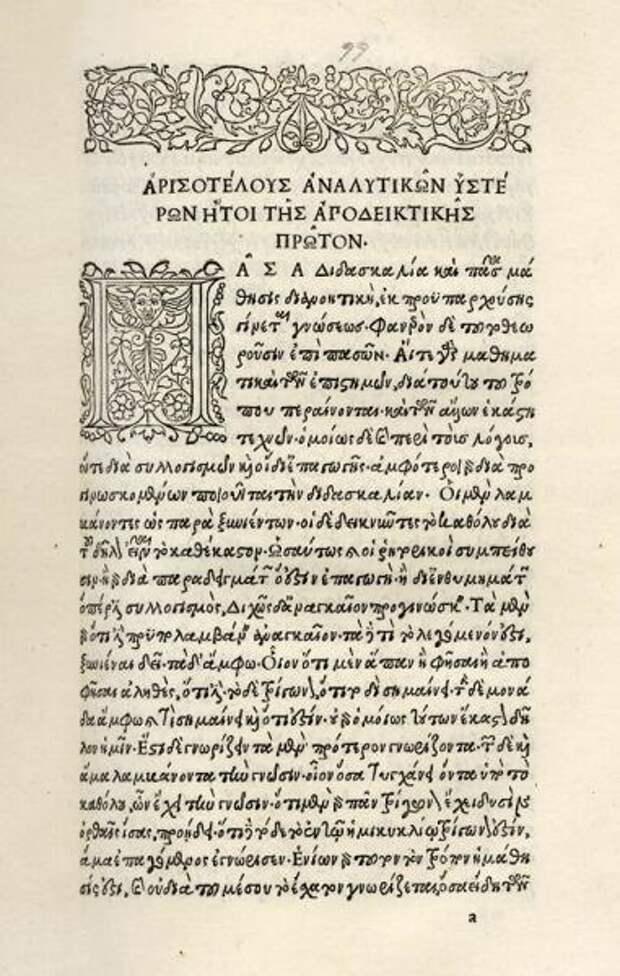 99
ΑΡΙΣΟΤΕΛΟΥΣ ΑΝΑΛΥΤΙΚΩ͂Ν ὙΣΤΕ
ΡΩΝ ἬΤΟΙ ΤΗ͂Σ ἈΠΟΔΕΙΚΤΙΚΗ͂Σ
ΠΡΩ͂ΤΟΝ·
ΠΑ͂ΣΑ Διδασκαλία καὶ πᾶσα μά
θησις διανοητικὴ, ἐκ προϋπαρχούσης
γίνεται γνώσεως· Φανερὸν δὲ τοῦτο θεω
ροῦσιν ἐπὶ πασῶν· Αἵ τε γὰρ μαθημα
τικαὶ τῶν ἐπιστημῶν, διὰ τούτου τοῦ τρό
που περαίνονται· καὶ τῶν ἄλλων ἑκάστη
τεχνῶν· ὁμοίως δὲ καὶ περὶ τοὺς λόγους,
οἵ τε διὰ συλλογισμῶν καὶ οἱ δι' ἐπαγωγῆς· ἀμφότεροι γὰρ διὰ προ
γινωσκομένων ποιοῦνται τὴν διδασκαλίαν· Οἱ μὲν λαμ
βάνοντες ὡς παρὰ ξυνιέντων· οἱ δὲ δεικνύντες τὸ καθόλου διὰ
τοῦ δῆλον εἶναι τὸ καθέκαστον· Ὡσαύτως καὶ οἱ ῥητορικοὶ συμπείθου
σιν· ἢ γὰρ διὰ παραδειγμάτων ὅ ἐστιν ἐπαγωγὴ· ἢ δι' ἐνθυμημάτων
ὅπερ ἐστὶ συλλογισμὸς, Διχῶς δ' ἀναγκαῖον προγινώσκειν· Τὰ μὲν
γὰρ ὅτι ἐστὶ προϋπολαμβάνειν ἀναγκαῖον· τὰ δὲ τί τὸ λεγόμενόν ἐστι,
ξυνιέναι δεῖ· τὰ δ' ἄμφω· Οἷον ὅτι μὲν ἅπαν ἢ φῆσαι ἢ ἀπο
φῆσαι ἀληθὲς, ὅτι ἐστὶ· τὸ δὲ τρίγωνον, ὅτι τοδὶ σημαίνει· τὴν δὲ μονά
δα ἄμφω καὶ τί σημαίνει καὶ ὅτι ἐστιν· οὐ γὰρ ὁμοίως τούτων ἕκαστον δῆ
λον ἡμῖν· Ἔστι δὲ γνωρίζειν τὰ μὲν πρότερον γνωρίζοντα· τῶν δὲ καὶ
ἅμα λαμβάνοντα τὴν γνῶσιν· οἷον ὅσα τυγχάνει ὄντα ὑπὸ τὸ
καθόλου, ὧν ἔχει τὴν γνῶσιν· ὅτι μὲν γὰρ πᾶν τρίγωνον ἔχει δυσὶν
ὀρθαῖς ἴσας, προῄδει· ὅτι δὲ τόδε τὸ ἐν τῷ ἡμικυκλίῳ τρίγωνόν ἐστιν,
ἅμα ἐπαγόμενος ἐγνώρισεν· Ἐνίων γὰρ τοῦτον τὸν τρόπον ἡ μάθη
σίς ἐστι, καὶ οὐ διὰ τοῦ μέσου τὸ ἔσχατον γνωρίζεται, ὅσα ἤδη τῶν
a